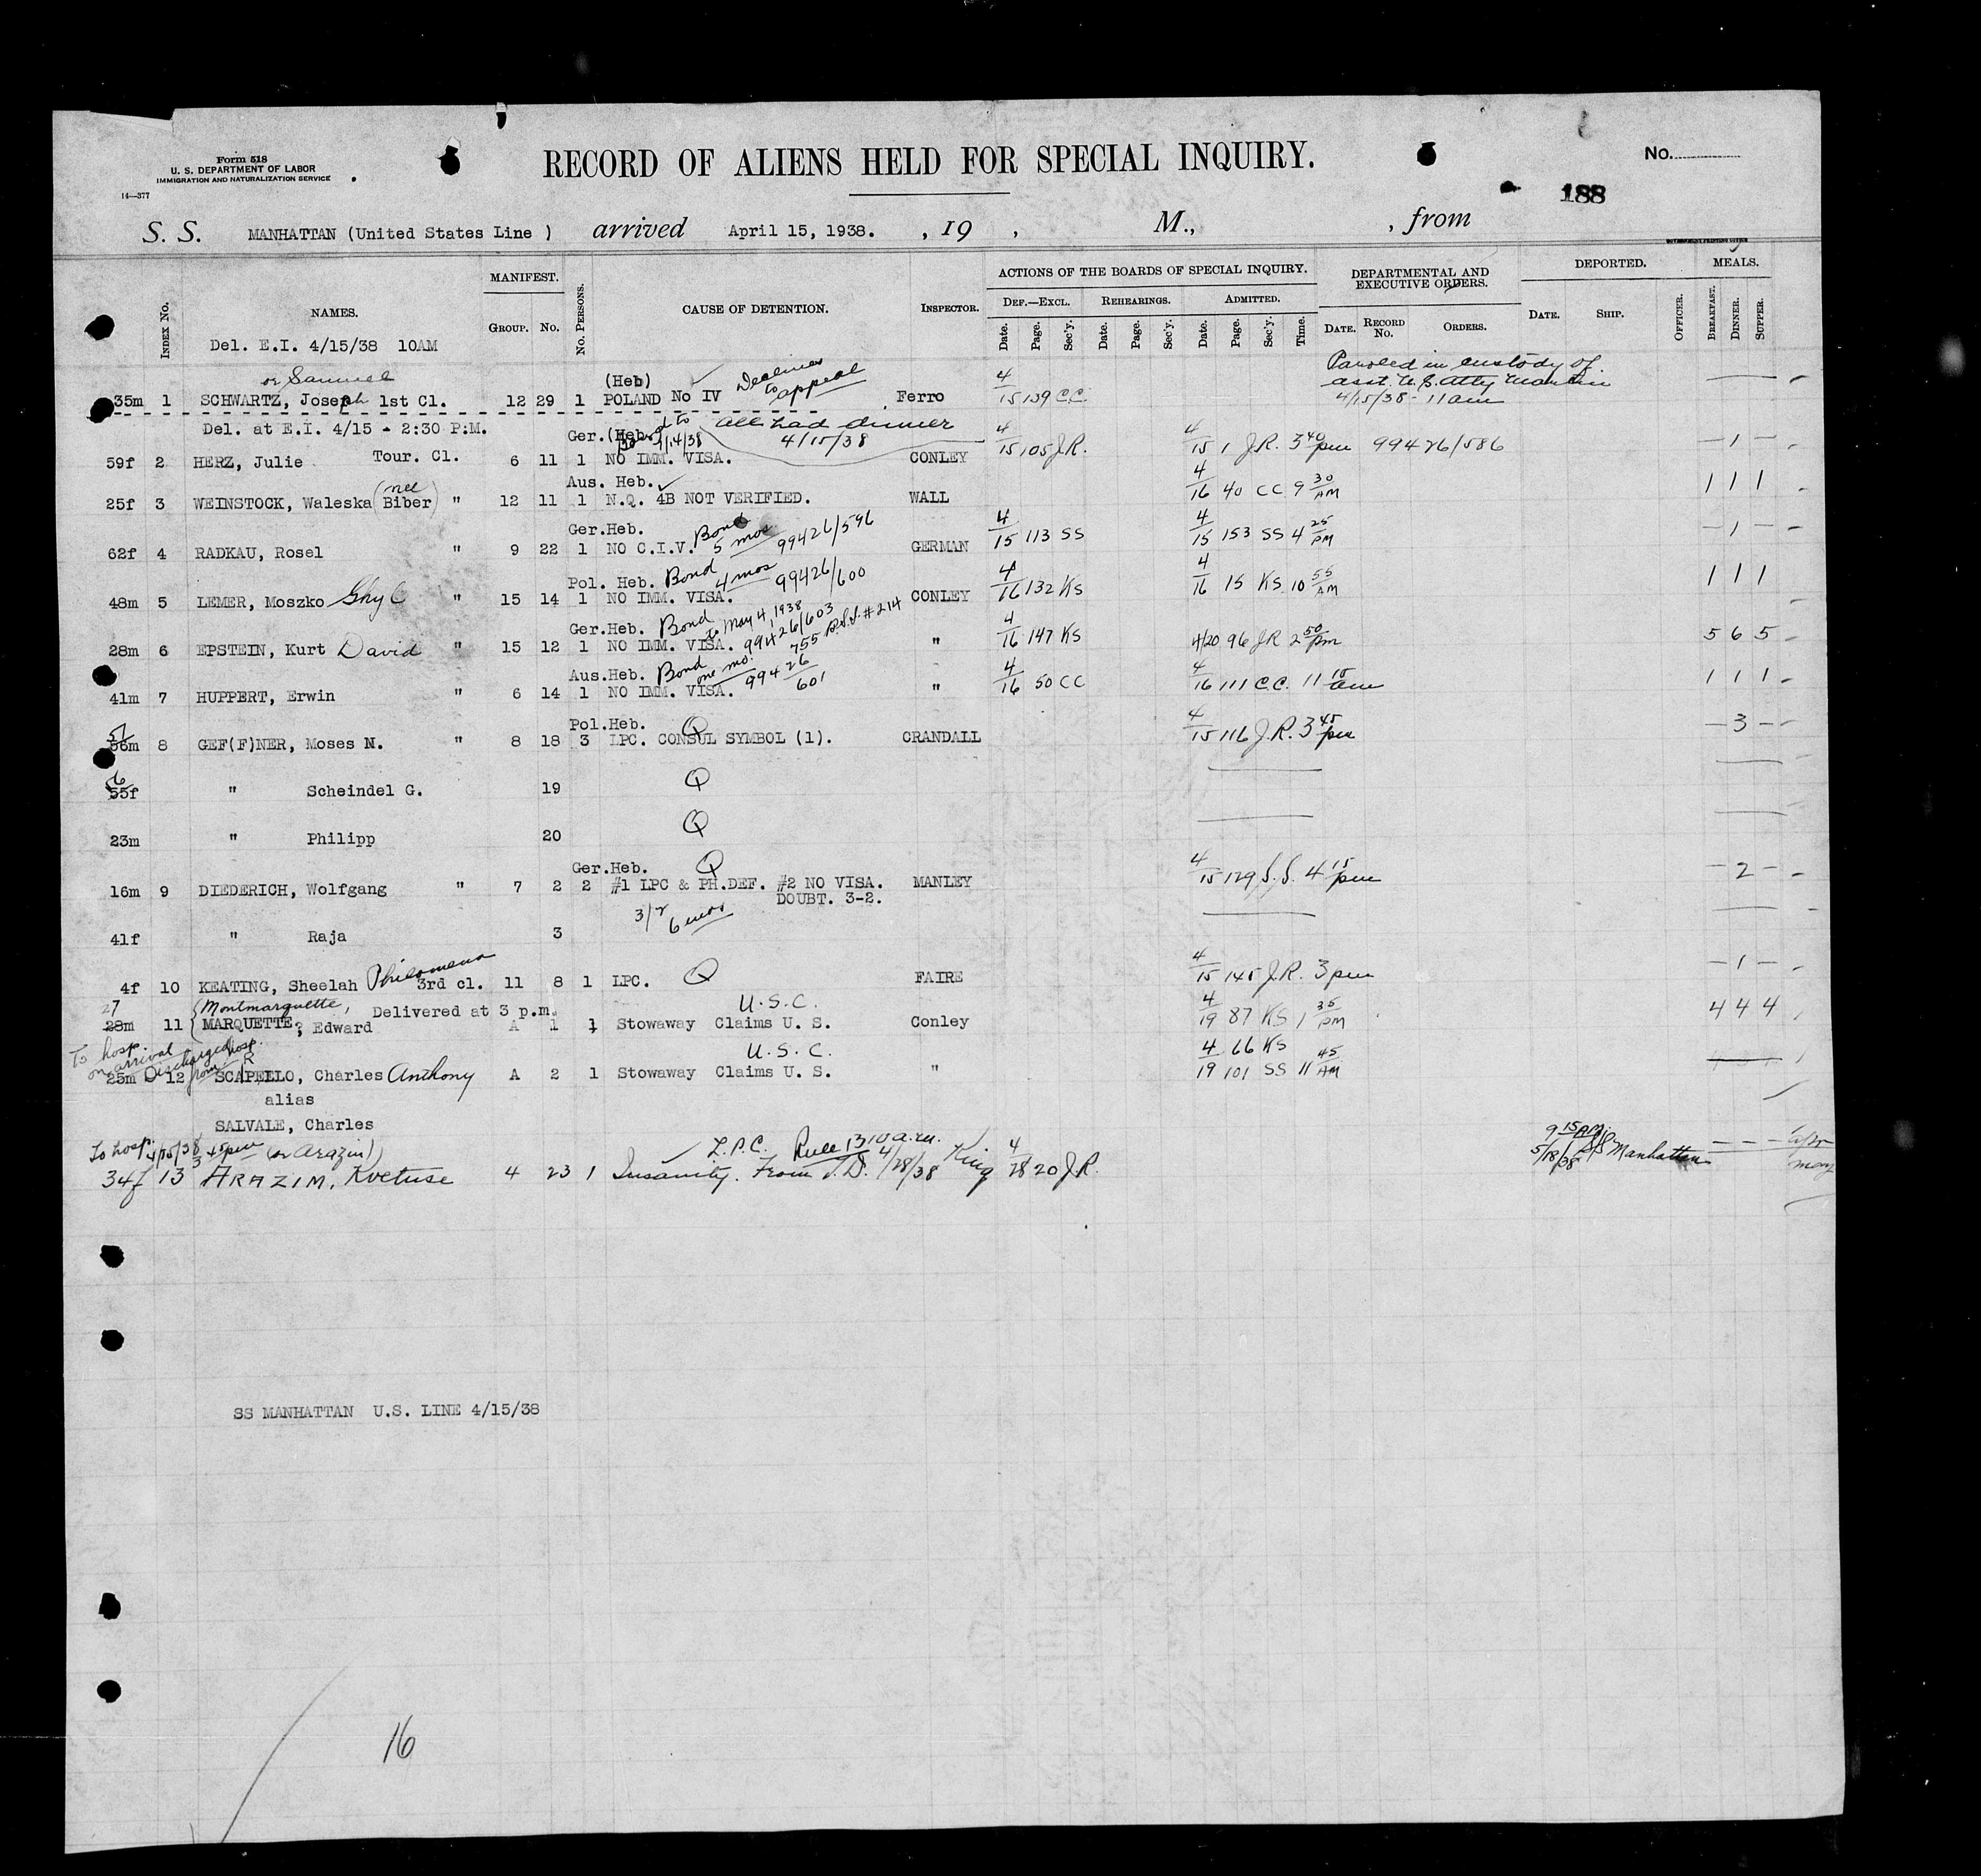 Form 518
U. S. DEPARTMENT OF LABOR
IMMIGRATION AND NATURALIZATION SERVICE
14—377
RECORD OF ALIENS HELD FOR SPECIAL INQUIRY.
No.
188
S. S. MANHATTAN (United States Line ) arrived April 15, 1938. , 19 , M., , from
GOVERNMENT PRINTING OFFICE
INDEX No. NAMES. MANIFEST. GROUP. No. No. PERSONS. CAUSE OF DETENTION. INSPECTOR. ACTIONS OF THE BOARDS OF SPECIAL INQUIRY. DEPARTMENTAL AND EXECUTIVE ORDERS. DEPORTED. MEALS.
DEF.—EXCL. REHEARINGS. ADMITTED.
Date. Page. Sec'y. Date. Page. Sec'y. Date. Page. Sec'y. Time. DATE. RECORD No. ORDERS. DATE. SHIP. OFFICER. BREAKFAST. DINNER. SUPPER.
Del. E.I. 4/15/38 10AM
or Samuel (Heb) Declines to appeal Paroled in custody of
asst. U.S. Atty
35m 1 SCHWARTZ, Joseph 1st Cl. 12 29 1 POLAND No IV Ferro 4/15 139 C.C. 4/15/38 - 11am
Del. at E.I. 4/15 - 2:30 P.M. Ger.(Heb. all had dinner 4/15/38
59f 2 HERZ, Julie Tour. Cl. 6 11 1 NO IMM. VISA. CONLEY 4/15 105 J.R. 4/15 1 J.R. 3 40 pm 99426/586 — 1 —
Aus. Heb.
25f 3 WEINSTOCK, Waleska (nee Biber) " 12 11 1 N.Q. 4B NOT VERIFIED. WALL 4/16 40 CC 9 30 AM 1 1 1
Ger.Heb. Bond 5 mos 99426/596
62f 4 RADKAU, Rosel " 9 22 1 NO C.I.V. GERMAN 4/15 113 SS 4/15 153 SS 4 25 PM — 1 —
Pol. Heb. Bond 4 mos 99426/600
48m 5 LEMER, Moszko " 15 14 1 NO IMM. VISA. CONLEY 4/16 132 KS 4/16 15 KS 10 55 AM 1 1 1
Ger.Heb. Bond to May 4, 1938 99426/603
28m 6 EPSTEIN, Kurt David " 15 12 1 NO IMM. VISA. " 4/16 147 KS 4/20 96 JR 2 50 pm 5 6 5
Aus.Heb. Bond one mo. 99426/601
41m 7 HUPPERT, Erwin " 6 14 1 NO IMM. VISA. " 4/16 50 CC 4/16 111 C.C. 11 10 am 1 1 1
Pol.Heb. Q
57 56m 8 GEF(F)NER, Moses N. " 8 18 3 LPC. CONSUL SYMBOL (1). CRANDALL 4/15 116 J.R. 3 45 pm — 3 —
6 55f " Scheindel G. 19 Q
23m " Philipp 20 Q
Ger.Heb. Q
16m 9 DIEDERICH, Wolfgang " 7 2 2 #1 LPC & PH.DEF. #2 NO VISA. MANLEY 4/15 129 S.S. 4 15 pm — 2 —
DOUBT. 3-2.
3/2 6 mos
41f " Raja 3
4f 10 KEATING, Sheelah Philomena 3rd cl. 11 8 1 LPC. Q FAIRE 4/15 145 J.R. 3 pm — 1 —
27 Montmarquette, Delivered at 3 p.m. U.S.C.
28m 11 MARQUETTE, Edward A 1 1 Stowaway Claims U. S. Conley 4/19 87 KS 1 35 PM 4 4 4
To hosp. on arrival Discharged from hosp. U.S.C. 4 66 KS
25m 12 SCAPELLO, Charles Anthony A 2 1 Stowaway Claims U. S. " 19 101 SS 11 45 AM
alias
SALVALE, Charles
To hosp. 4/15/38 (or Arazin) L.P.C. Rule 13 10 a.m. 9 15 AM
34f 13 ARAZIM, Kvetuse 4 23 1 Insanity. From T.D. 4/28/38 King 4/28 20 J.R. 5/18/38 SS Manhattan — — —
SS MANHATTAN U.S. LINE 4/15/38
16